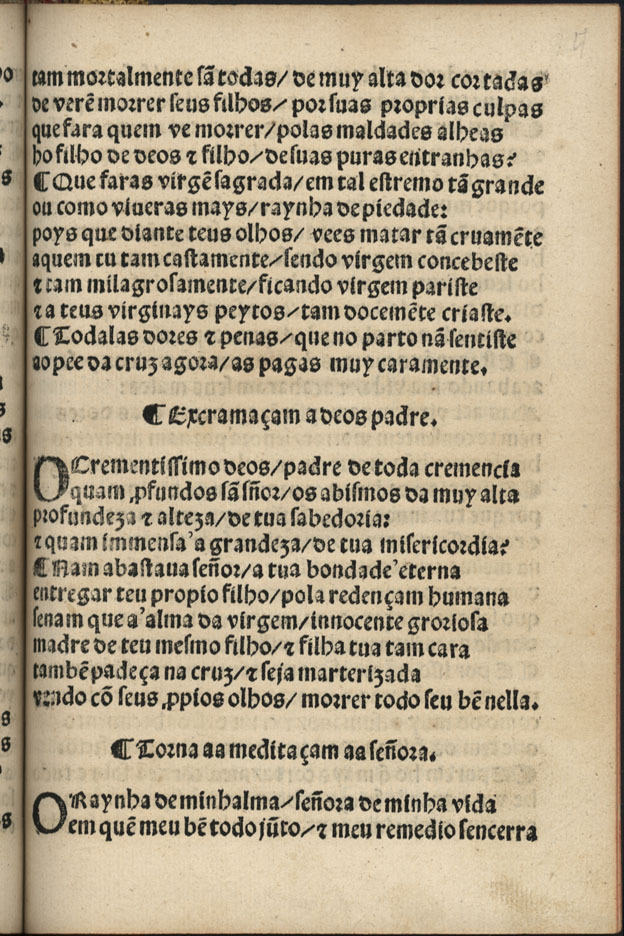 tam mortalmente sã todas/ de muy alta dor cortadas
de verẽ morrer seus filhos/ por suas proprias culpas
que fara quem ve morrer/polas maldades alheas
ho filho de deos ⁊ filho/de suas puras entranhas?
¶Que faras virgẽ sagrada/em tal estremo tã grande
ou como viueras mays/raynha de piedade:
poys que diante teus olhos/ vees matar tã cruamẽte
aquem tu tam castamente/sendo virgem concebeste
⁊ tam milagrosamente/ficando virgem pariste
⁊ a teus virginays peytos/tam docemẽte criaste.
¶Todalas dores ⁊ penas/que no parto nã sentiste
ao pee da cruz agora/as pagas muy caramente.
¶Excramaçam a deos padre.
OCrementissimo deos/padre de toda cremencia
quam ꝓfundos sã sñor/os abismos da muy alta
profundeza ⁊ alteza/de tua sabedoria:
⁊ quam immensa'a grandeza/de tua misericordia?
¶Nam abastaua señor/a tua bondade'eterna
entregar teu propio filho/pola redençam humana
senam que a'alma da virgem/innocente groriosa
madre de teu mesmo filho/⁊ filha tua tam cara
tambẽ padeça na cruz/⁊ seja marterizada
vendo cõ seus ꝓpios olhos/ morrer todo seu bẽ nella.
¶Torna aa meditaçam aa señora.
ORaynha de minhalma/señora de minha vida
em quẽ meu bẽ todo jũto/⁊ meu remedio sencerra